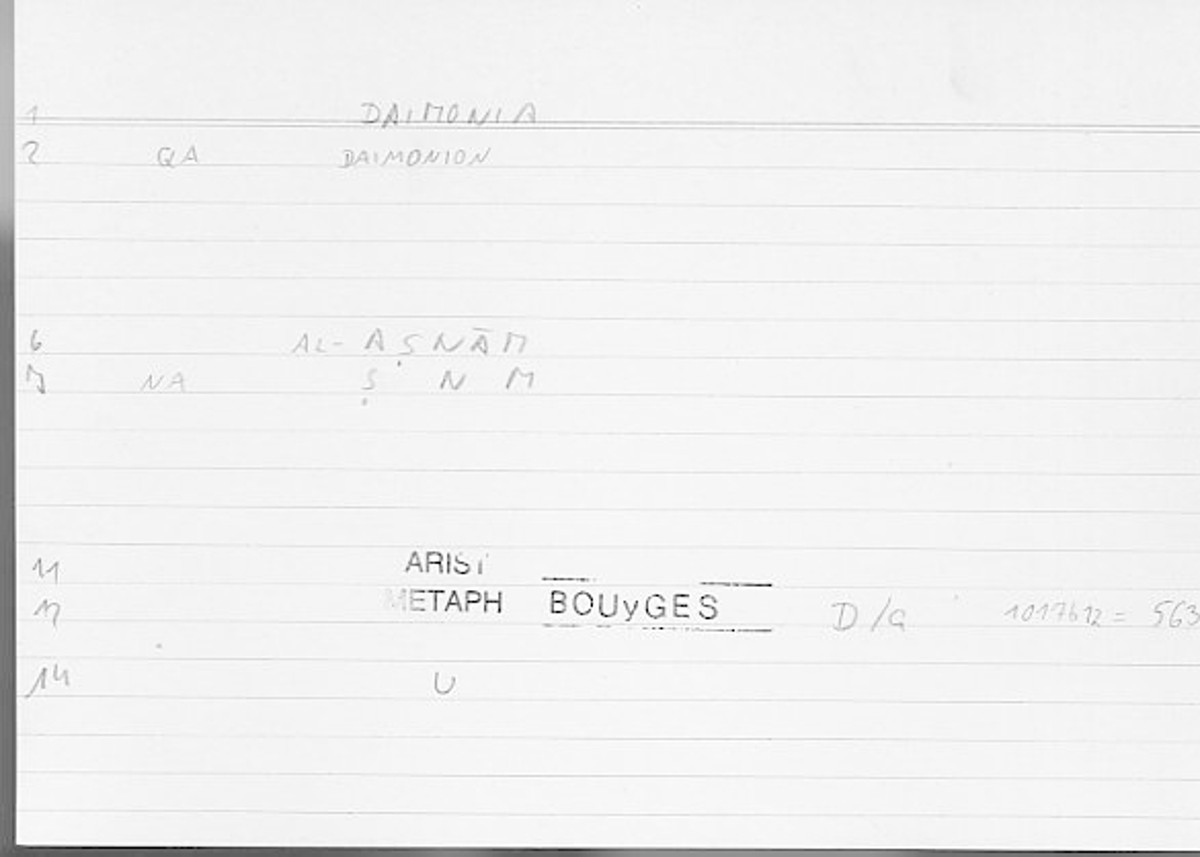 1 DAIMONIA
2 QA DAIMONION
6 AL-AṢNĀM
7 NA Ṣ N M
11 ARIST
12 METAPH BOUyGES D/a 1017b12 = 563
14 U